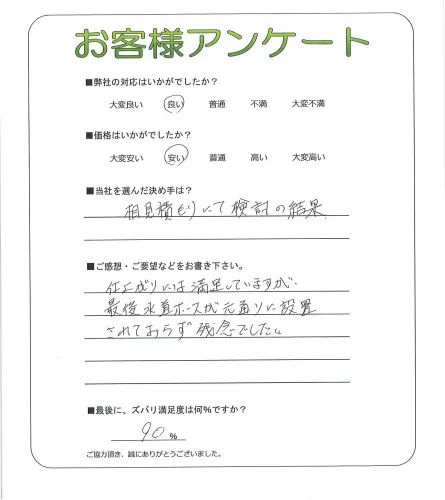 お客様アンケート
■弊社の対応はいかがでしたか?
大変良い 良い 普通 不満 大変不満
■価格はいかがでしたか?
大変安い 安い 普通 高い 大変高い
■当社を選んだ決め手は?
相見積もりにて検討の結果.
■ご感想・ご要望などをお書き下さい。
仕上がりには満足していますが.
最後水道ホースが元通りに設置
されておらず残念でした。
■最後に、ズバリ満足度は何%ですか?
90 %
ご協力頂き、誠にありがとうございました。